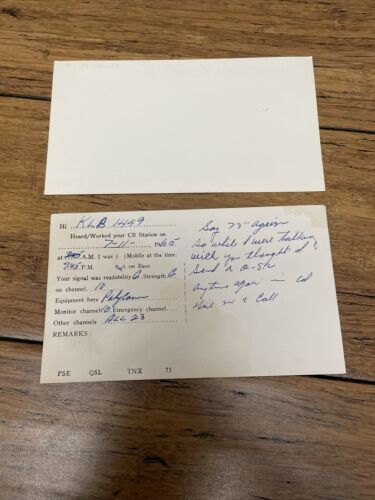 Hi KLB 1449
Heard/Worked your CB Station on
7-11- 1965
at A.M. I was ( ) Mobile at the time.
7:45 P.M. on Base
Your signal was readability 6 Strength 6
on channel 10
Equipment here
Monitor channel 10 Emergency channel
Other channels ALL 23
REMARKS:
PSE QSL TNX 73
Say 73" again
so while I were talking
with you thought I'd
Send a Q-SL
anytime again in
give me a Call